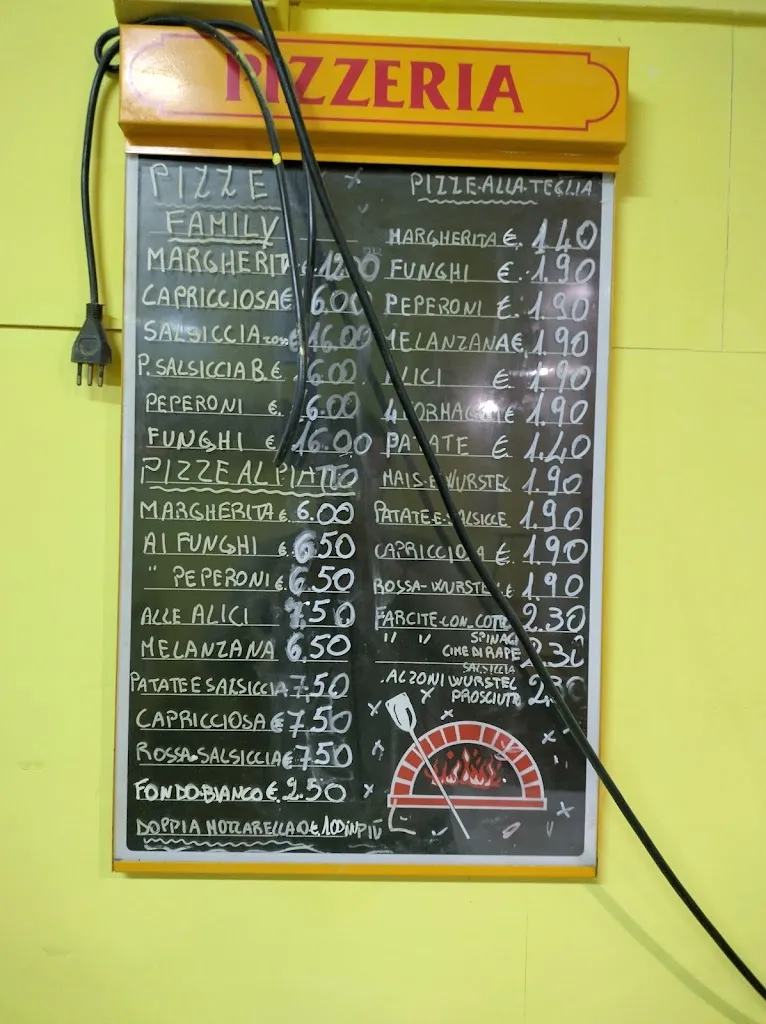 PIZZERIA
PIZZE
FAMILY
MARGHERIT € 12.00
CAPRICCIOSA € 6.00
SALSICCIA € 16.00
P. SALSICCIA B. € 6.00
PEPERONI € 6.00
FUNGHI € 16.00
PIZZE AL PIATTO
MARGHERITA € 6.00
AI FUNGHI € 6.50
" PEPERONI € 6.50
ALLE ALICI 7.50
MELANZANA 6.50
PATATE E SALSICCIA 7.50
CAPRICCIOSA € 7.50
ROSSA-SALSICCIA € 7.50
FONDO-BIANCO € 2.50
DOPPIA MOZZARELLA € 1.00 IN PIÚ
PIZZE-ALLA-TEGLIA
MARGHERITA € 1.40
FUNGHI € 1.90
PEPERONI € 1.90
MELANZANA € 1.90
ALICI € 1.90
4 FORMAGGI € 1.90
PATATE € 1.40
MAIS-E-WURSTEL 1.90
PATATE-E-SALSICCE 1.90
CAPRICCIOSA € 1.90
ROSSA-WURSTE € 1.90
FARCITE-CON-COTT 2.30
" " SPINACI
CIME DI RAPE 2.30
SALSICCIA
ALZONI WURSTEL
PROSCIUTO 2.30